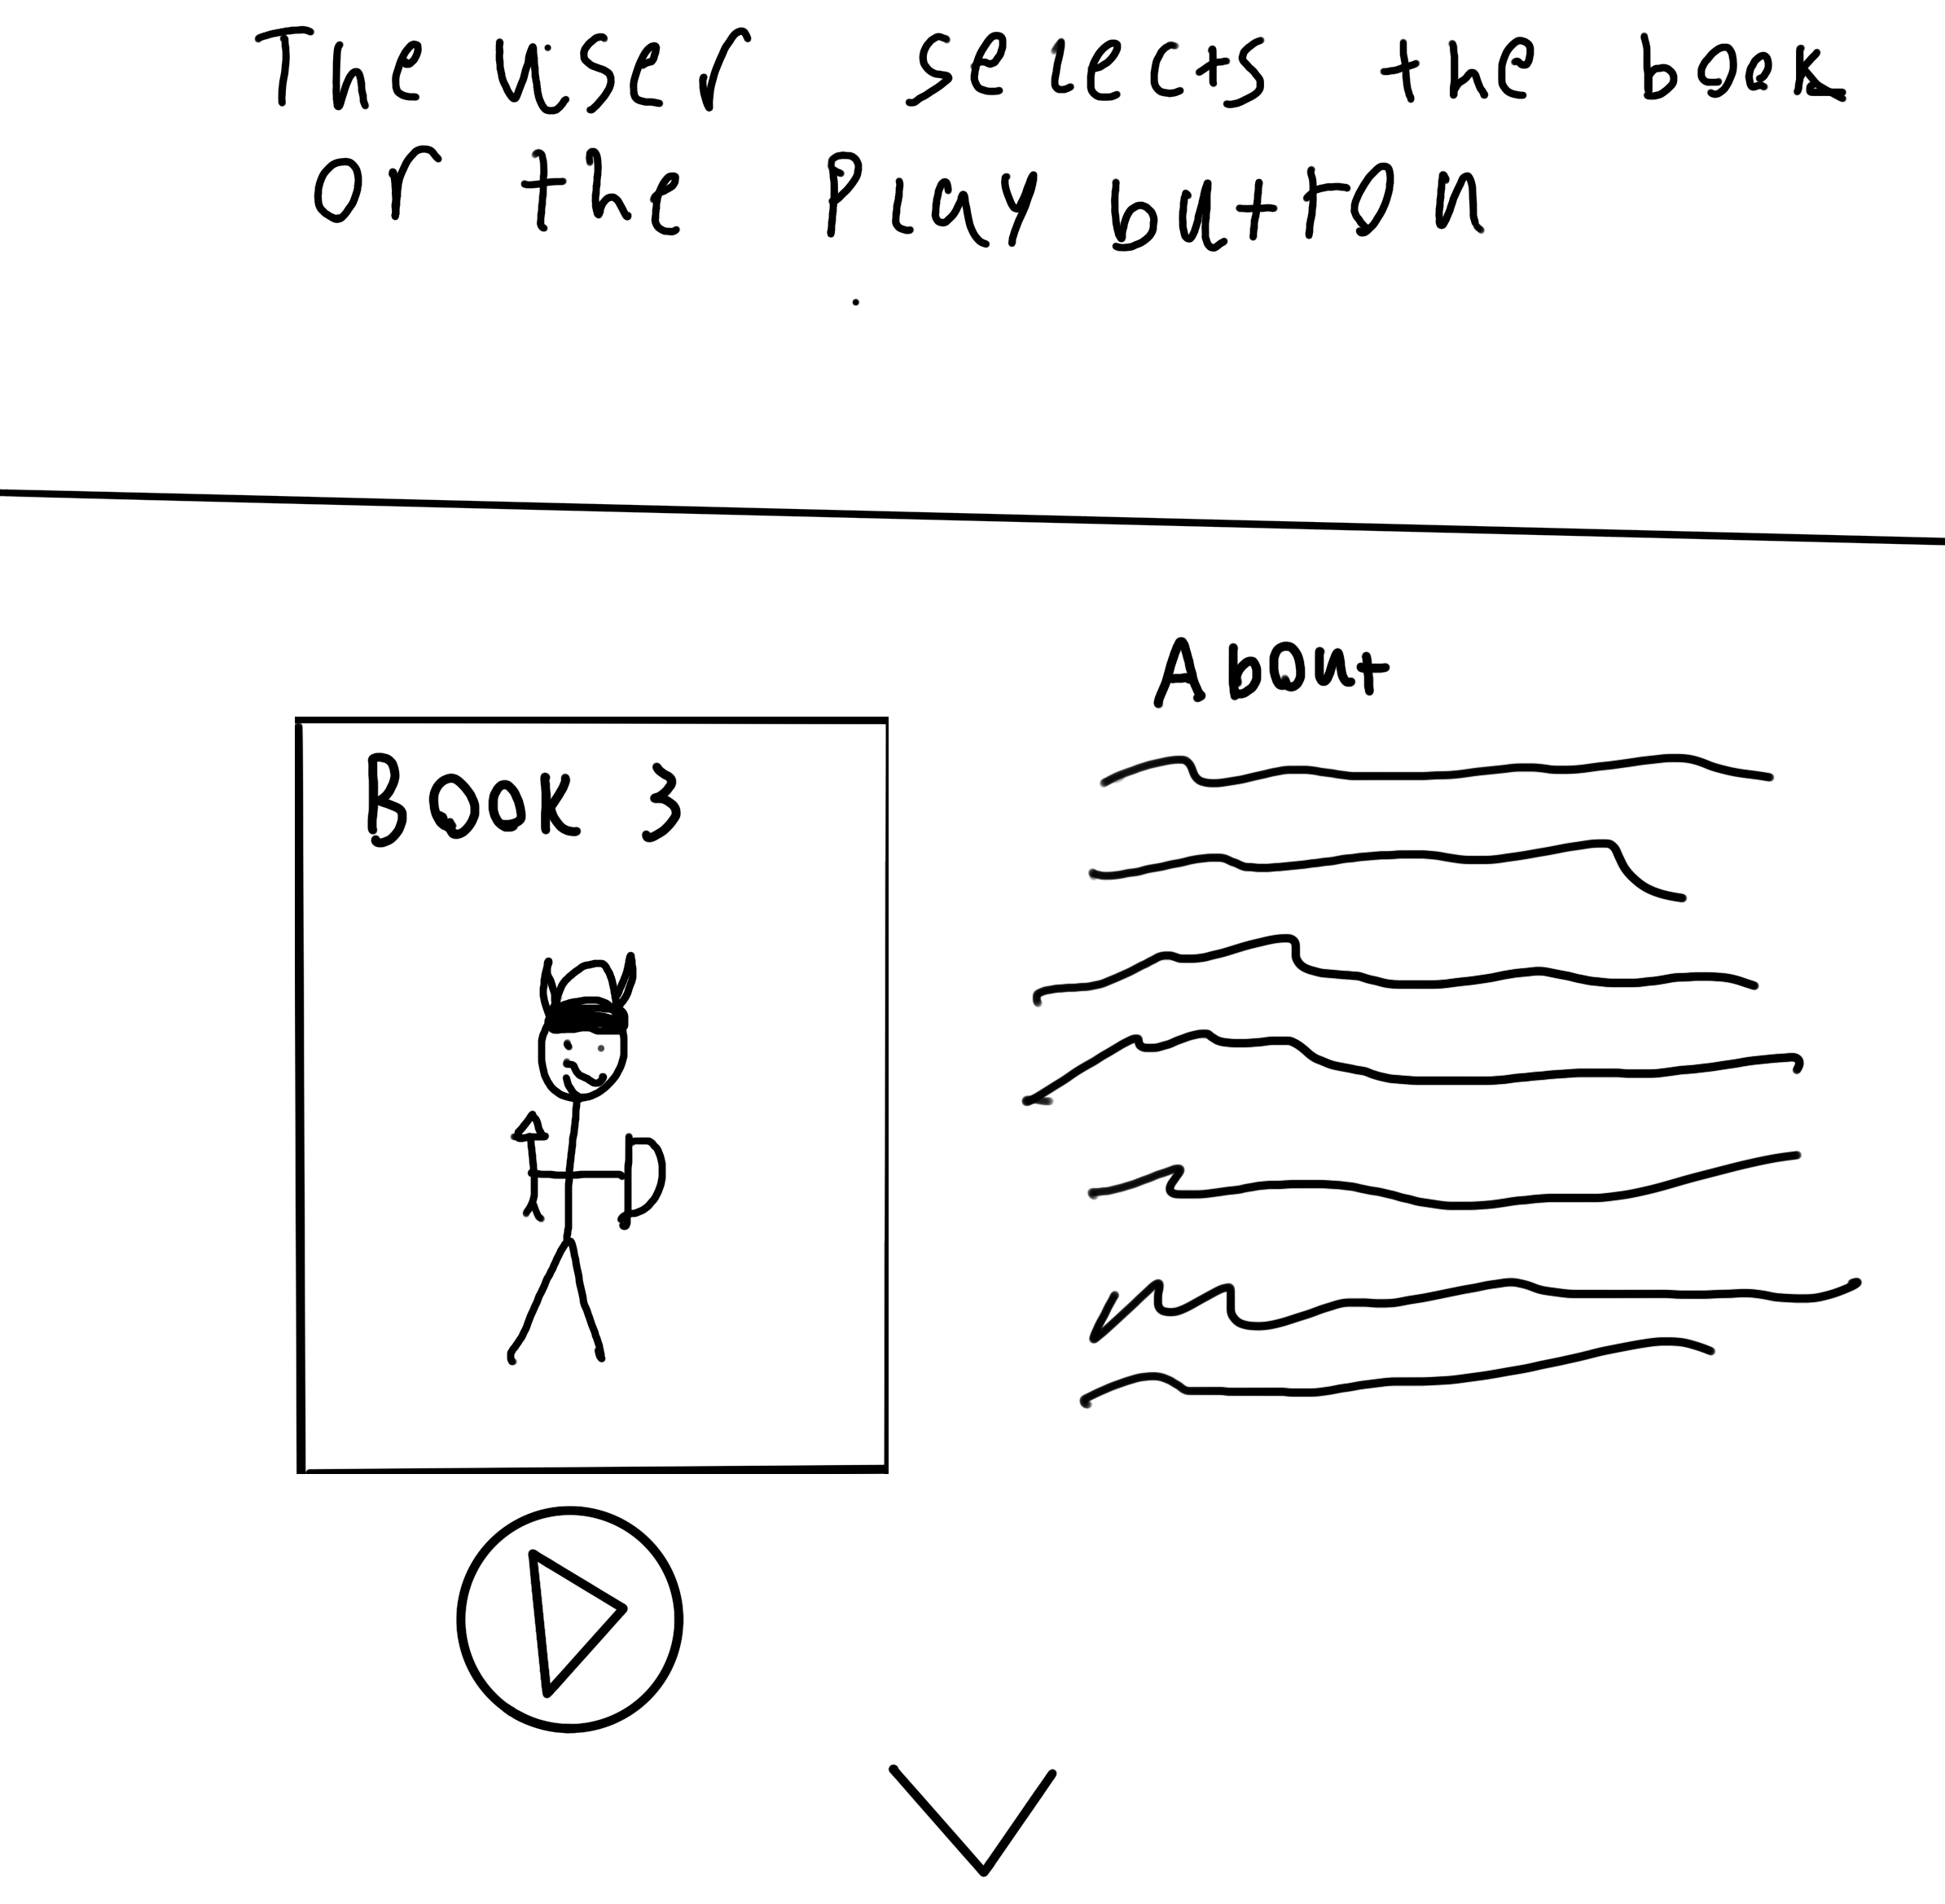 The user selects the book
or the Play button
About
Book 3